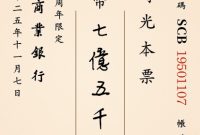 碼 SCB 19501107 帳
光本票
幣七億五千
周年限定
商業銀行
二五年十一月七日